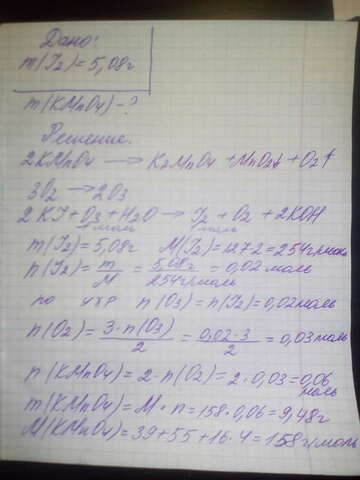 Дано:
m(I₂)=5,08г
m(KMnO₄)-?
Решение.
2KMnO₄ → K₂MnO₄ + MnO₂↓ + O₂↑
3O₂ → 2O₃
2KI + O₃ + H₂O → I₂ + O₂ + 2KOH
1моль 1моль
m(I₂)=5,08г M(I₂)=127·2=254г/моль
n(I₂)= m/M = 5,08г/254г/моль = 0,02моль
по ухр n(O₃)=n(I₂)=0,02моль
n(O₂)= 3·n(O₃)/2 = 0,02·3/2 = 0,03моль
n(KMnO₄)=2·n(O₂)=2·0,03=0,06
моль
m(KMnO₄)=M·n=158·0,06=9,48г
M(KMnO₄)=39+55+16·4=158г/моль